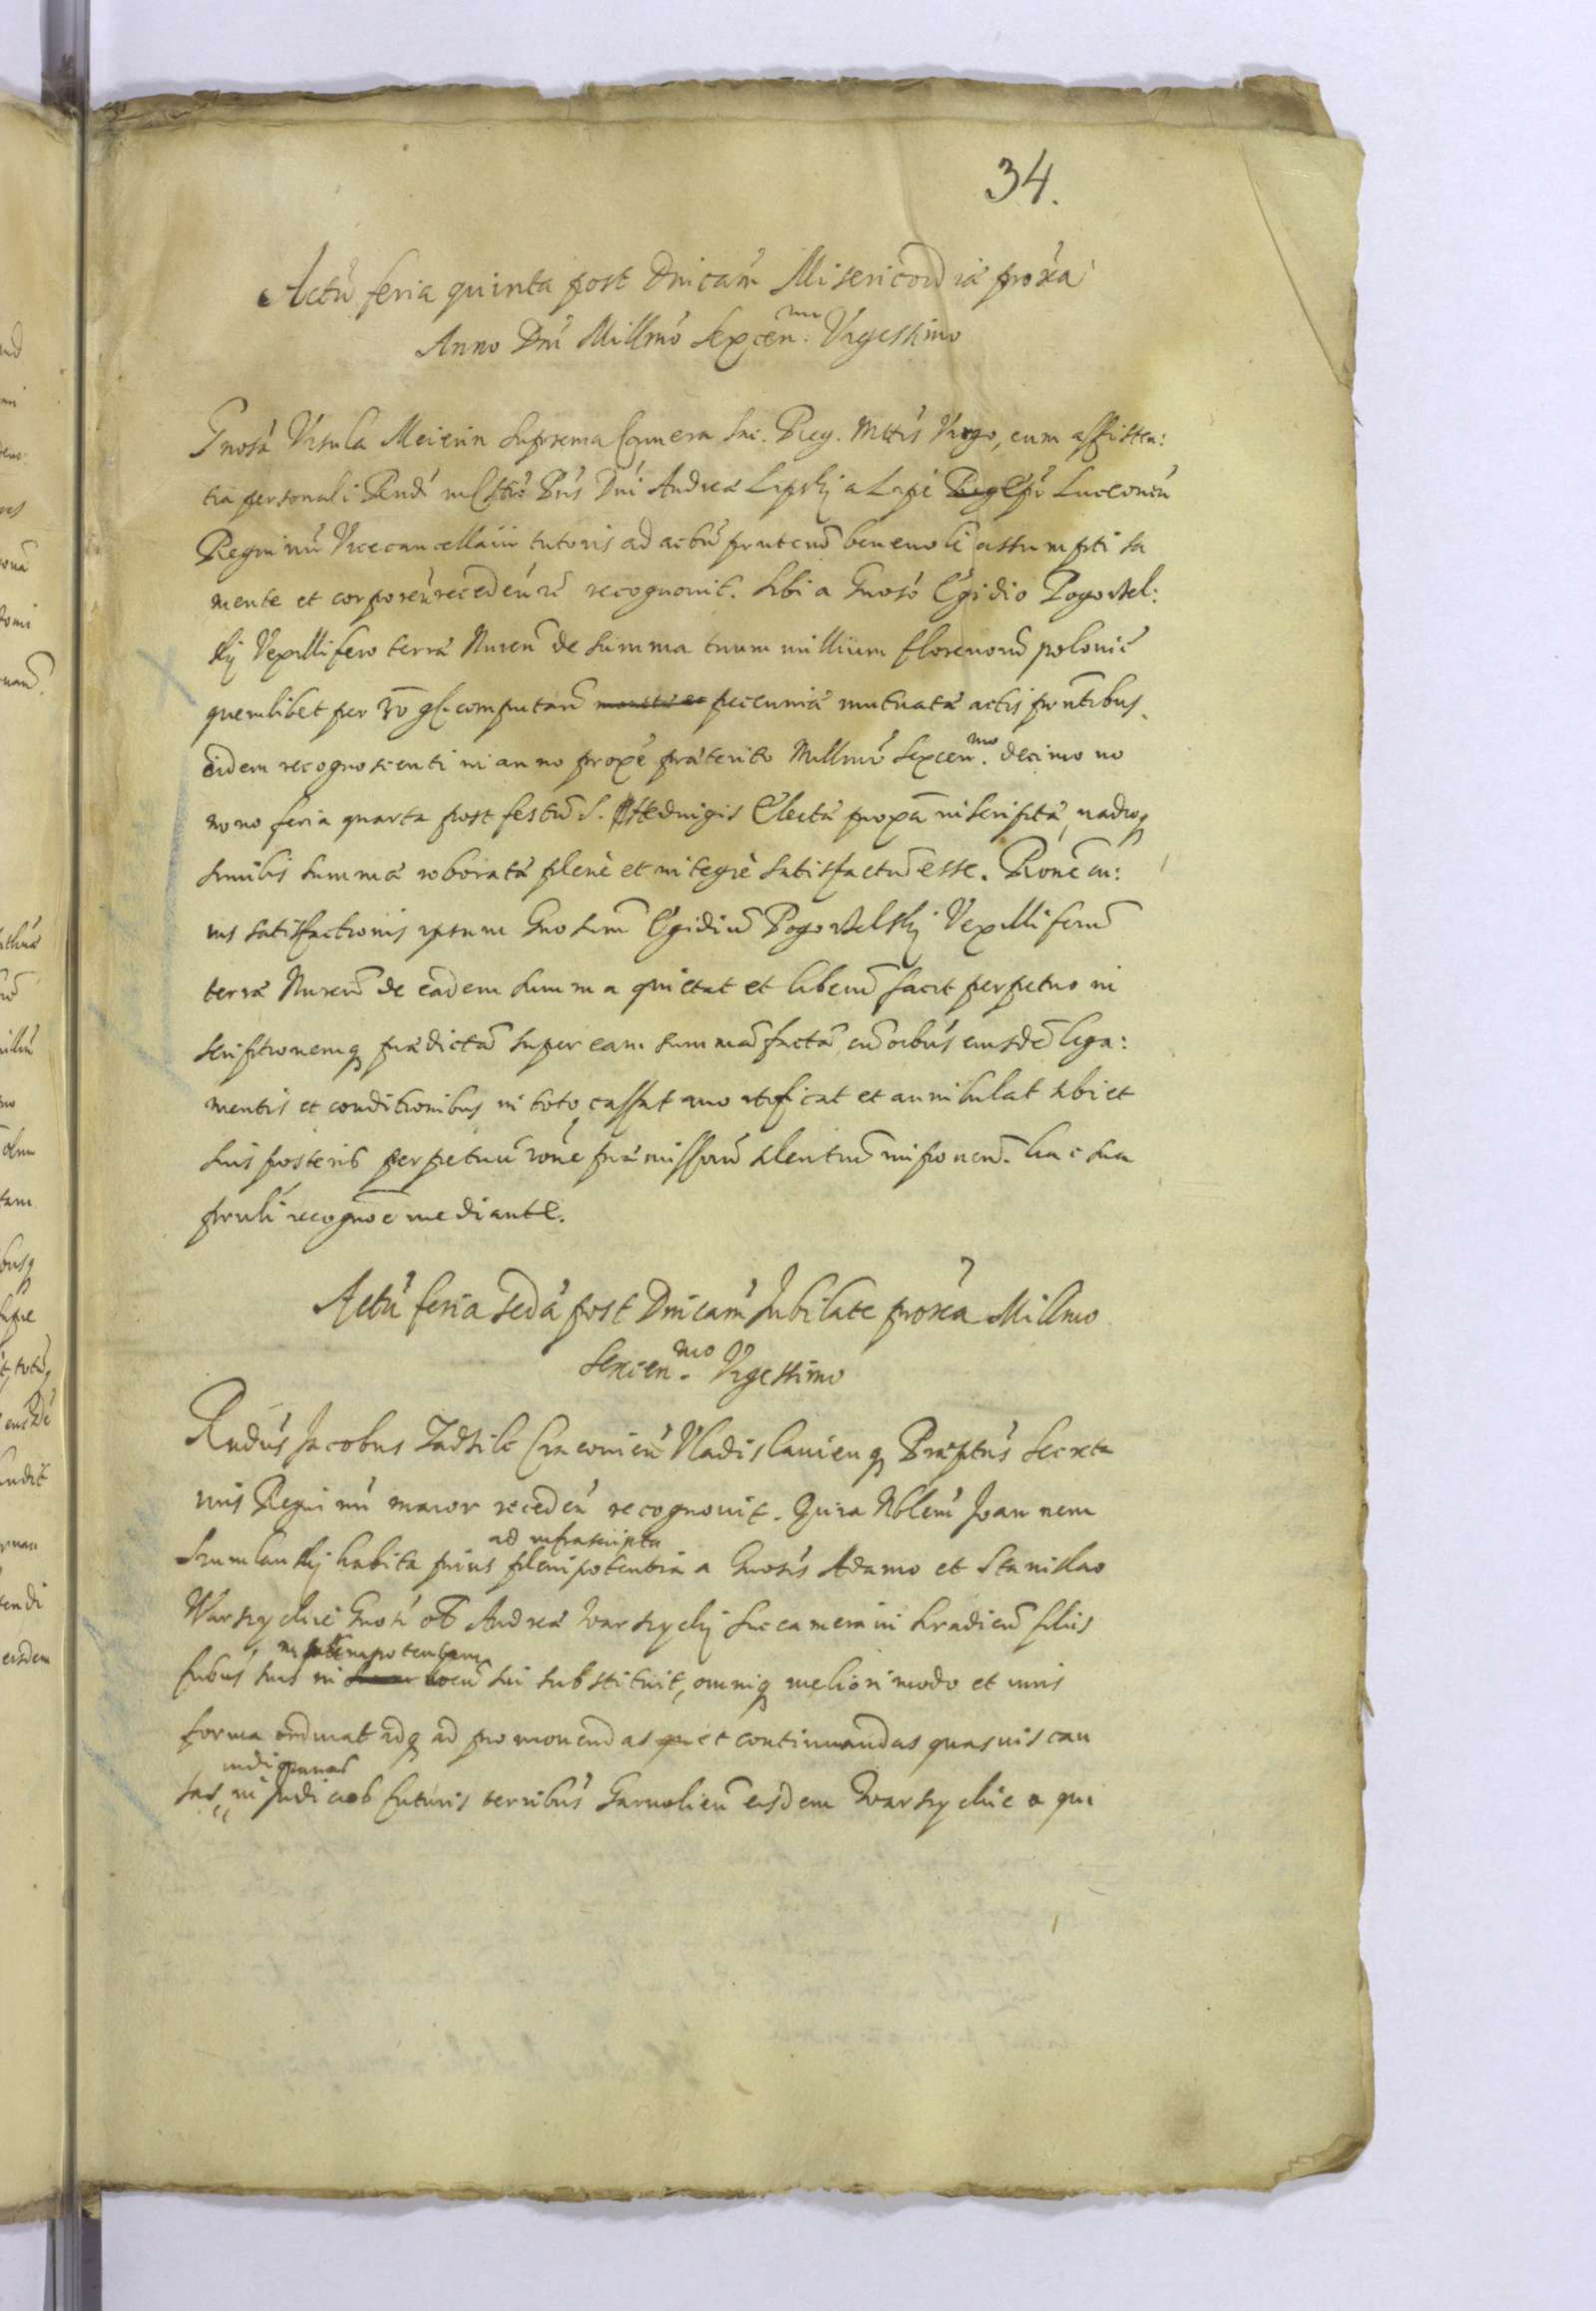 34.
Actu feria quinta post Dnicam Misericordia proxa
Anno Dni Millmo Sexcen.mo Vigessimo
Gnosa Vrsula Meierin Suprema Camera Sac. Reg. Mttis Virgo, cum assisten:
tia personali Rendi in Chro Pris Dni Andrea Lipsky a Lipe Epi Luceorien
Regni Vicecancellarii tutoris ad actu pnte benevoli assumpti sa
mente et corpore recognovit. Sibi a Gnoso Egidio Pogorzel:
sky Vexillifero terra Nuren de summa trium millium florenoru polonic
quemlibet per 30 gl. computan pecunia mutuata actis pntibus
eidem recognoscenti in anno proxe praterito Millmo Sexcen.mo decimo no
nono feria quarta post festu S. Hedvigis Electa proxa inscripta, vadioq
similis summa roborata plene et integre satisfactu esse. Rone cu:
ius satisfactionis ipsum Gnosum Egidiu Pogorzelsky Vexilliferu
terra Nuren de eadem summa quietat et liberu facit perpetuo in
scriptionemq pradicta super eam summa facta cu oibus eiusde liga:
mentis et conditionibus in toto cassat mortificat et annihilat sibi et
suis posteris perpetuu rone pramissoru silentiu imponen. hac sua
recogno mediante.
Actu feria scda post Dnicam Jubilate proxa Millmo
Sexcen.mo Vigessimo
Rndus Jacobus Zadzik Cracovien Vladislavienq Praptus Secreta
rius Regni maior recognovit. Quia Nblem Joannem
ad infrascripta
Szumlansky habita prius plenipotentia a Gnosis Adamo et Stanislao
Warszyckie Gnosi Andrea Warszycky Succamerarii Siradien filiis
in plenipotentem
fribus suis in locu sui substituit, omniq meliori modo et iuris
forma ordinat idq ad promovendas et continuandas quasvis cau
sas in Judiciob futuris terribus Garvolien eisdem Warszyckie a qui